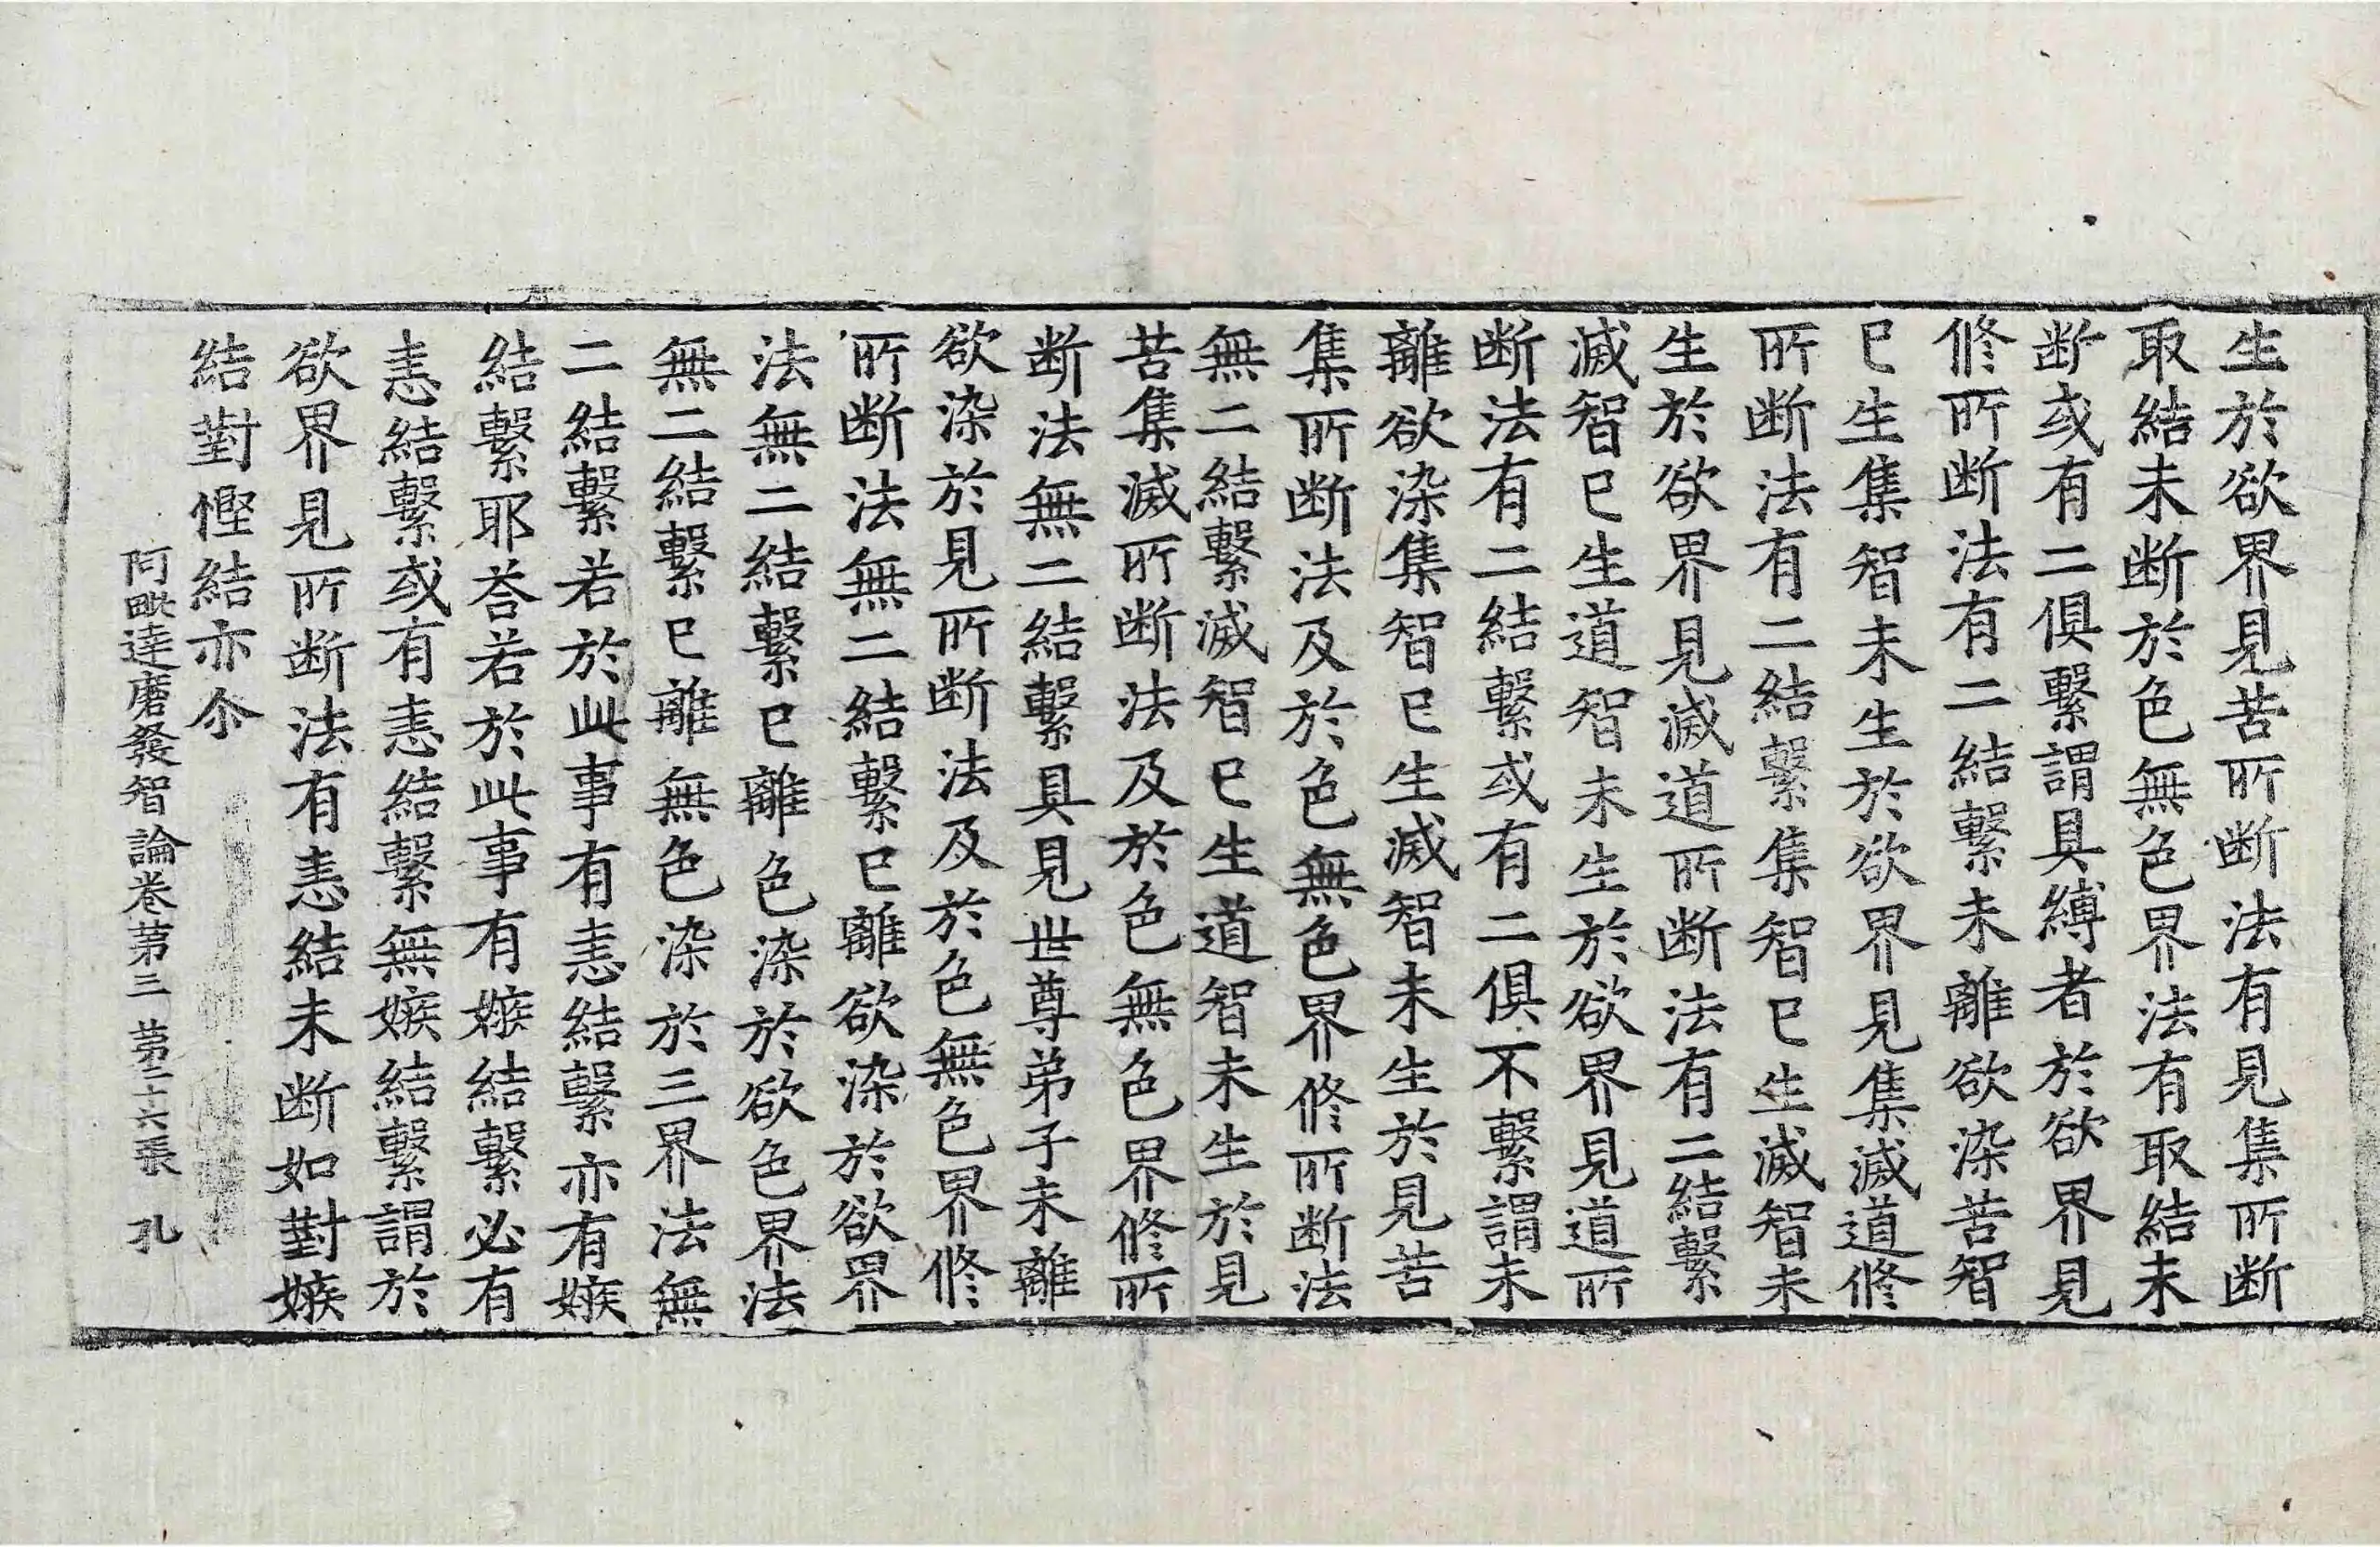 生於欲界見苦所断法有見集所断
取結未断於色無色界法有取結未
断或有二俱繫謂具縛者於欲界見
修所断法有二結繫未離欲染苦智
已生集智未生於欲界見集滅道修
所断法有二結繫集智已生滅智未
生於欲界見滅道所断法有二結繫
滅智已生道智未生於欲界見道所
断法有二結繫或有二俱不繫謂未
離欲染集智已生滅智未生於見苦
集所断法及於色無色界修所断法
無二結繫滅智已生道智未生於見
苦集滅所断法及於色無色界修所
断法無二結繫具見世尊弟子未離
欲染於見所断法及於色無色界修
所断法無二結繫已離欲染於欲界
法無二結繫已離色染於欲色界法
無二結繫已離無色染於三界法無
二結繫若於此事有恚結繫亦有嫉
結繫耶荅若於此事有嫉結繫必有
恚結繫或有恚結繫無嫉結繫謂於
欲界見所断法有恚結未断如對嫉
結對慳結亦尒
阿毗達磨發智論卷第三 第二十六張 孔